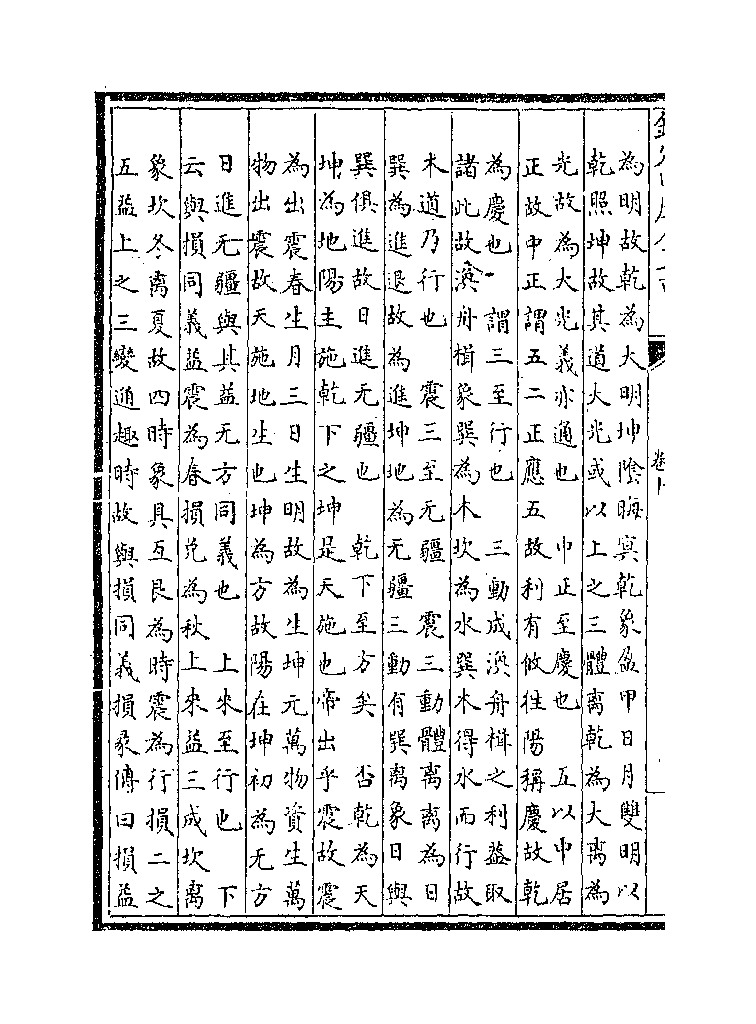 為明故乾為大明坤陰晦冥乾象盈甲日月雙明以
乾照坤故其道大光或以上之三體离乾為大离為
光故為大光義亦通也　中正至慶也　五以中居
正故中正謂五二正應五故利有攸往陽稱慶故乾
為慶也　謂三至行也　三動成渙舟楫之利益取
諸此故渙舟楫象巽為木坎為水巽木得水而行故
木道乃行也　震三至无疆　震三動體离离為日
巽為進退故為進坤地為无疆三動有巽离象日與
巽俱進故日進无疆也　乾下至方矣　否乾為天
坤為地陽主施乾下之坤是天施也帝出乎震故震
為出震春生月三日生明故為生坤元萬物資生萬
物出震故天施地生也坤為方故陽在坤初為无方
日進无疆與其益无方同義也　上來至行也　下
云與損同義益震為春損兌為秋上來益三成坎离
象坎冬离夏故四時象具互艮為時震為行損二之
五益上之三變通趣時故與損同義損彖傳曰損益